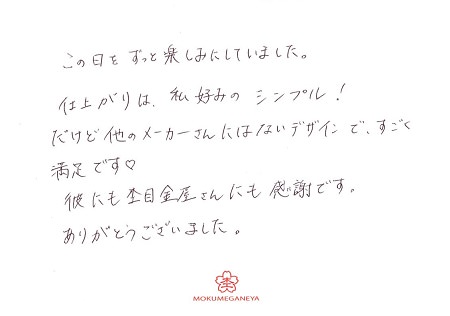 この日を ずっと楽しみにしていました。
仕上がりは、私好みの シンプル！
だけど他のメーカーさんにはないデザインで、すごく
満足です♡
彼にも杢目金屋さんにも 感謝です。
ありがとうございました。
杢
MOKUMEGANEYA